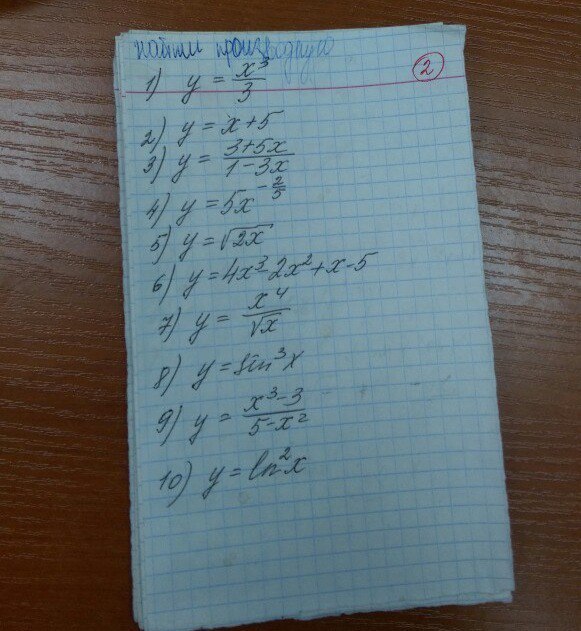 найти производную
2
1) y = x³/3
2) y = x+5
3) y = (3+5x)/(1-3x)
4) y = 5x^(-2/5)
5) y = √2x
6) y = 4x³-2x²+x-5
7) y = x⁴/√x
8) y = sin³x
9) y = (x³-3)/(5-x²)
10) y = ln²x